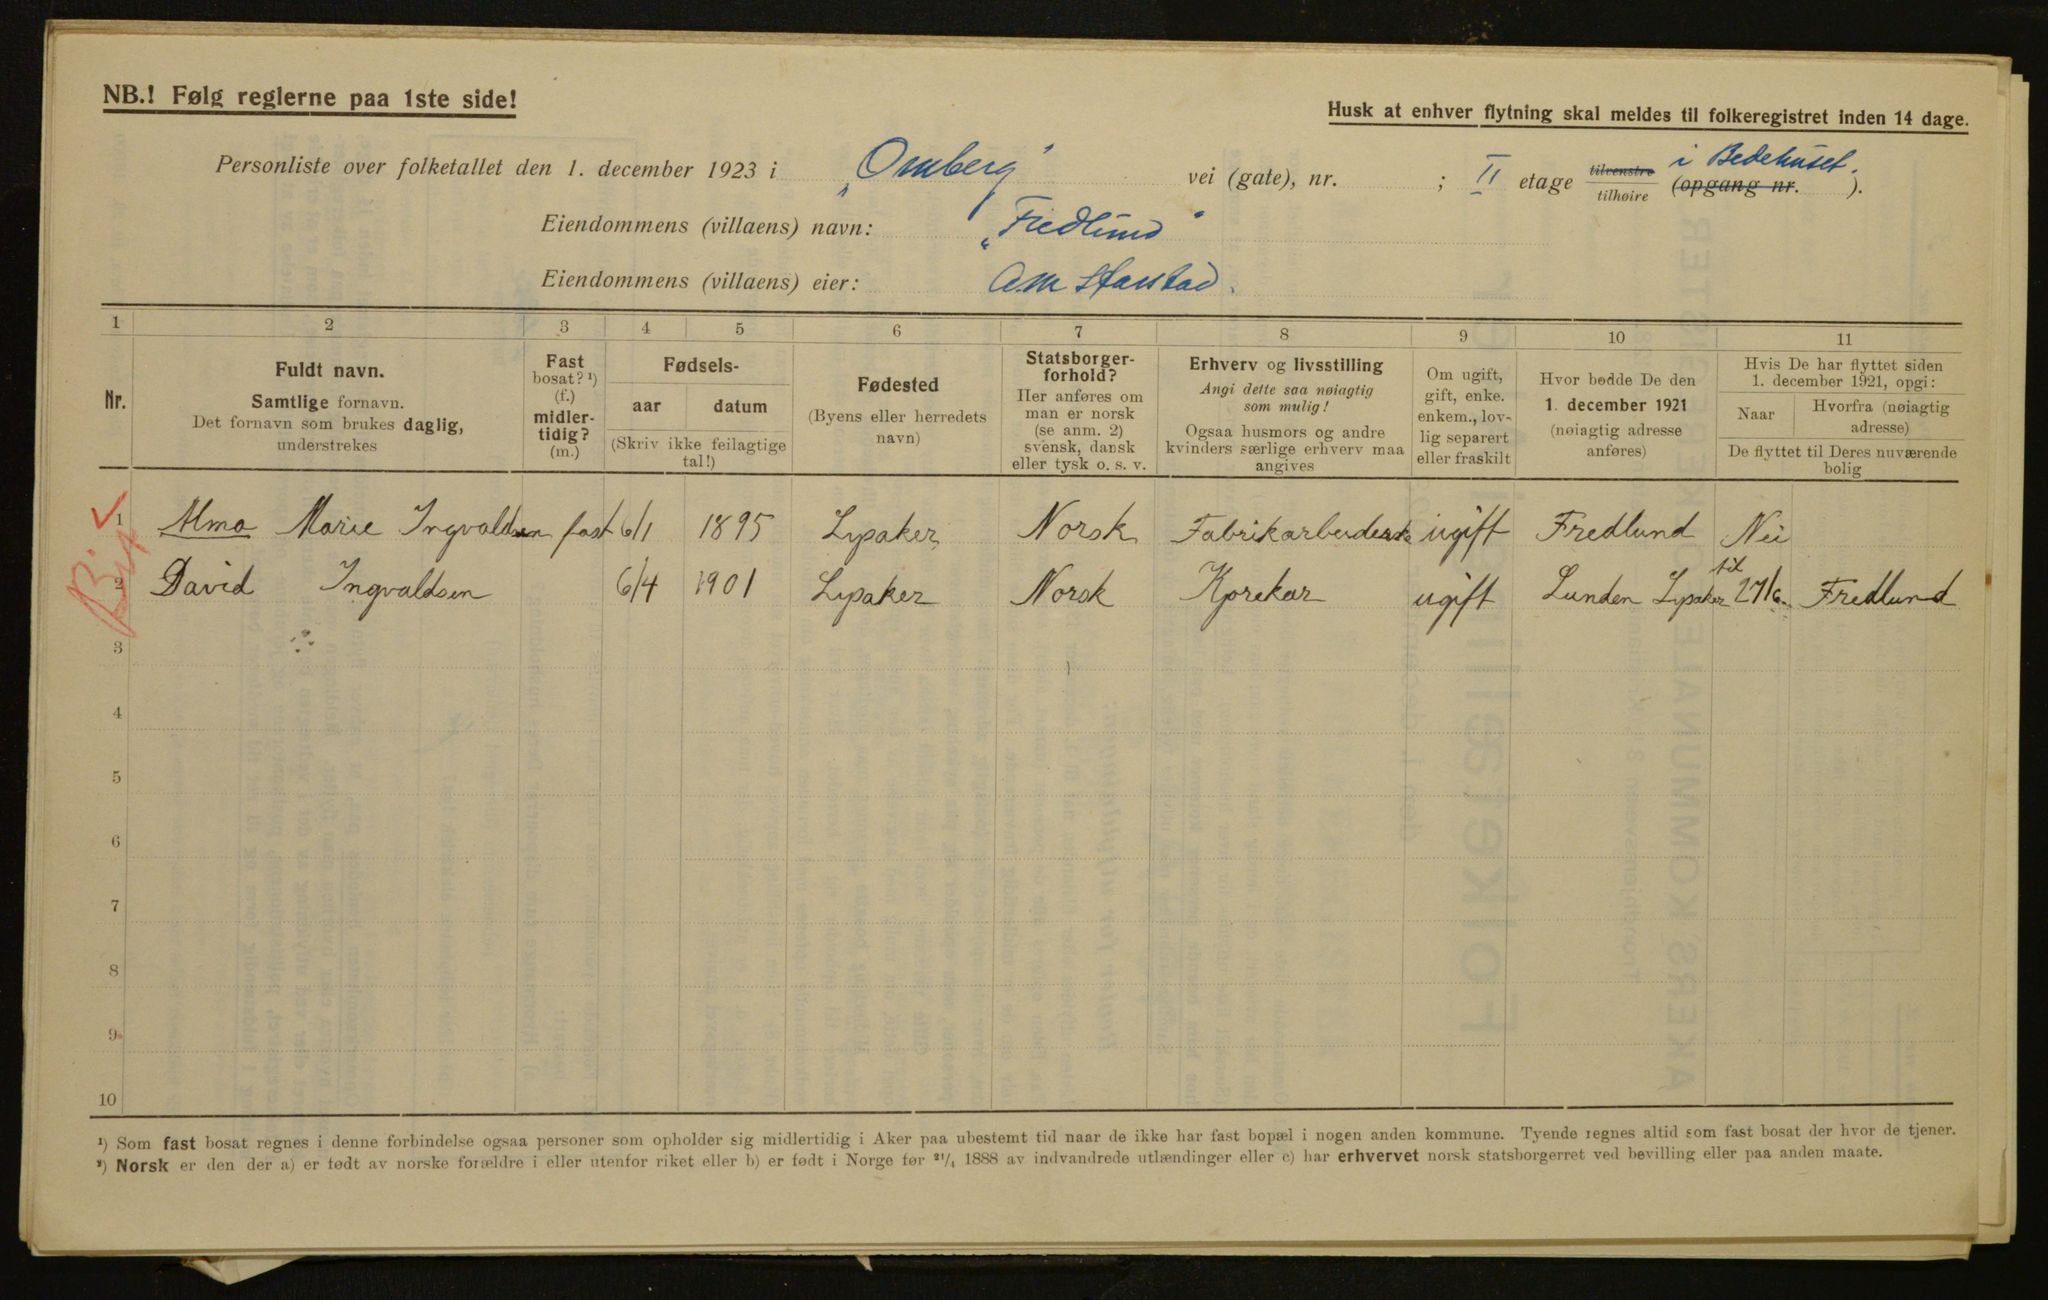 NB.! Følg reglerne paa 1ste side!
Husk at enhver flytning skal meldes til folkeregistret inden 14 dage.
Personliste over folketallet den 1. december 1923 i „Omberg" vei (gate), nr. ; II etage tilvenstre tilhøire (opgang nr. ). i Bedehuset.
Eiendommens (villaens) navn: „Fredlund"
Eiendommens (villaens) eier:
1 2 3 4 5 6 7 8 9 10 11
Nr.
Fuldt navn.
Samtlige fornavn.
Det fornavn som brukes daglig,
understrekes
Fast
bosat? ¹)
(f.)
midler-
tidig?
(m.)
Fødsels-
aar datum
(Skriv ikke feilagtige
tal!)
Fødested
(Byens eller herredets
navn)
Statsborger-
forhold?
Her anføres om
man er norsk
(se anm. 2)
svensk, dansk
eller tysk o. s. v.
Erhverv og livsstilling
Angi dette saa nøiagtig
som mulig!
Ogsaa husmors og andre
kvinders særlige erhverv maa
angives
Om ugift,
gift, enke.
enkem., lov-
lig separert
eller fraskilt
Hvor bodde De den
1. december 1921
(nøiagtig adresse
anføres)
Hvis De har flyttet siden
1. december 1921, opgi:
Naar Hvorfra (nøiagtig
adresse)
De flyttet til Deres nuværende
bolig
1 Alma Marie Ingvaldsen fast 6/1 1895 Lysaker Norsk Fabrikarbeiderske ugift Fredlund Nei
2 David Ingvaldsen 6/4 1901 Lysaker Norsk Kjørekar ugift Lunden Lysaker til 27/6 Fredlund
3
4
5
6
7
8
9
10
¹) Som fast bosat regnes i denne forbindelse ogsaa personer som opholder sig midlertidig i Aker paa ubestemt tid naar de ikke har fast bopæl i nogen anden kommune. Tyende regnes altid som fast bosat der hvor de tjener.
²) Norsk er den der a) er født av norske forældre i eller utenfor riket eller b) er født i Norge før ²¹/₄ 1888 av indvandrede utlændinger eller c) har erhvervet norsk statsborgerret ved bevilling eller paa anden maate.